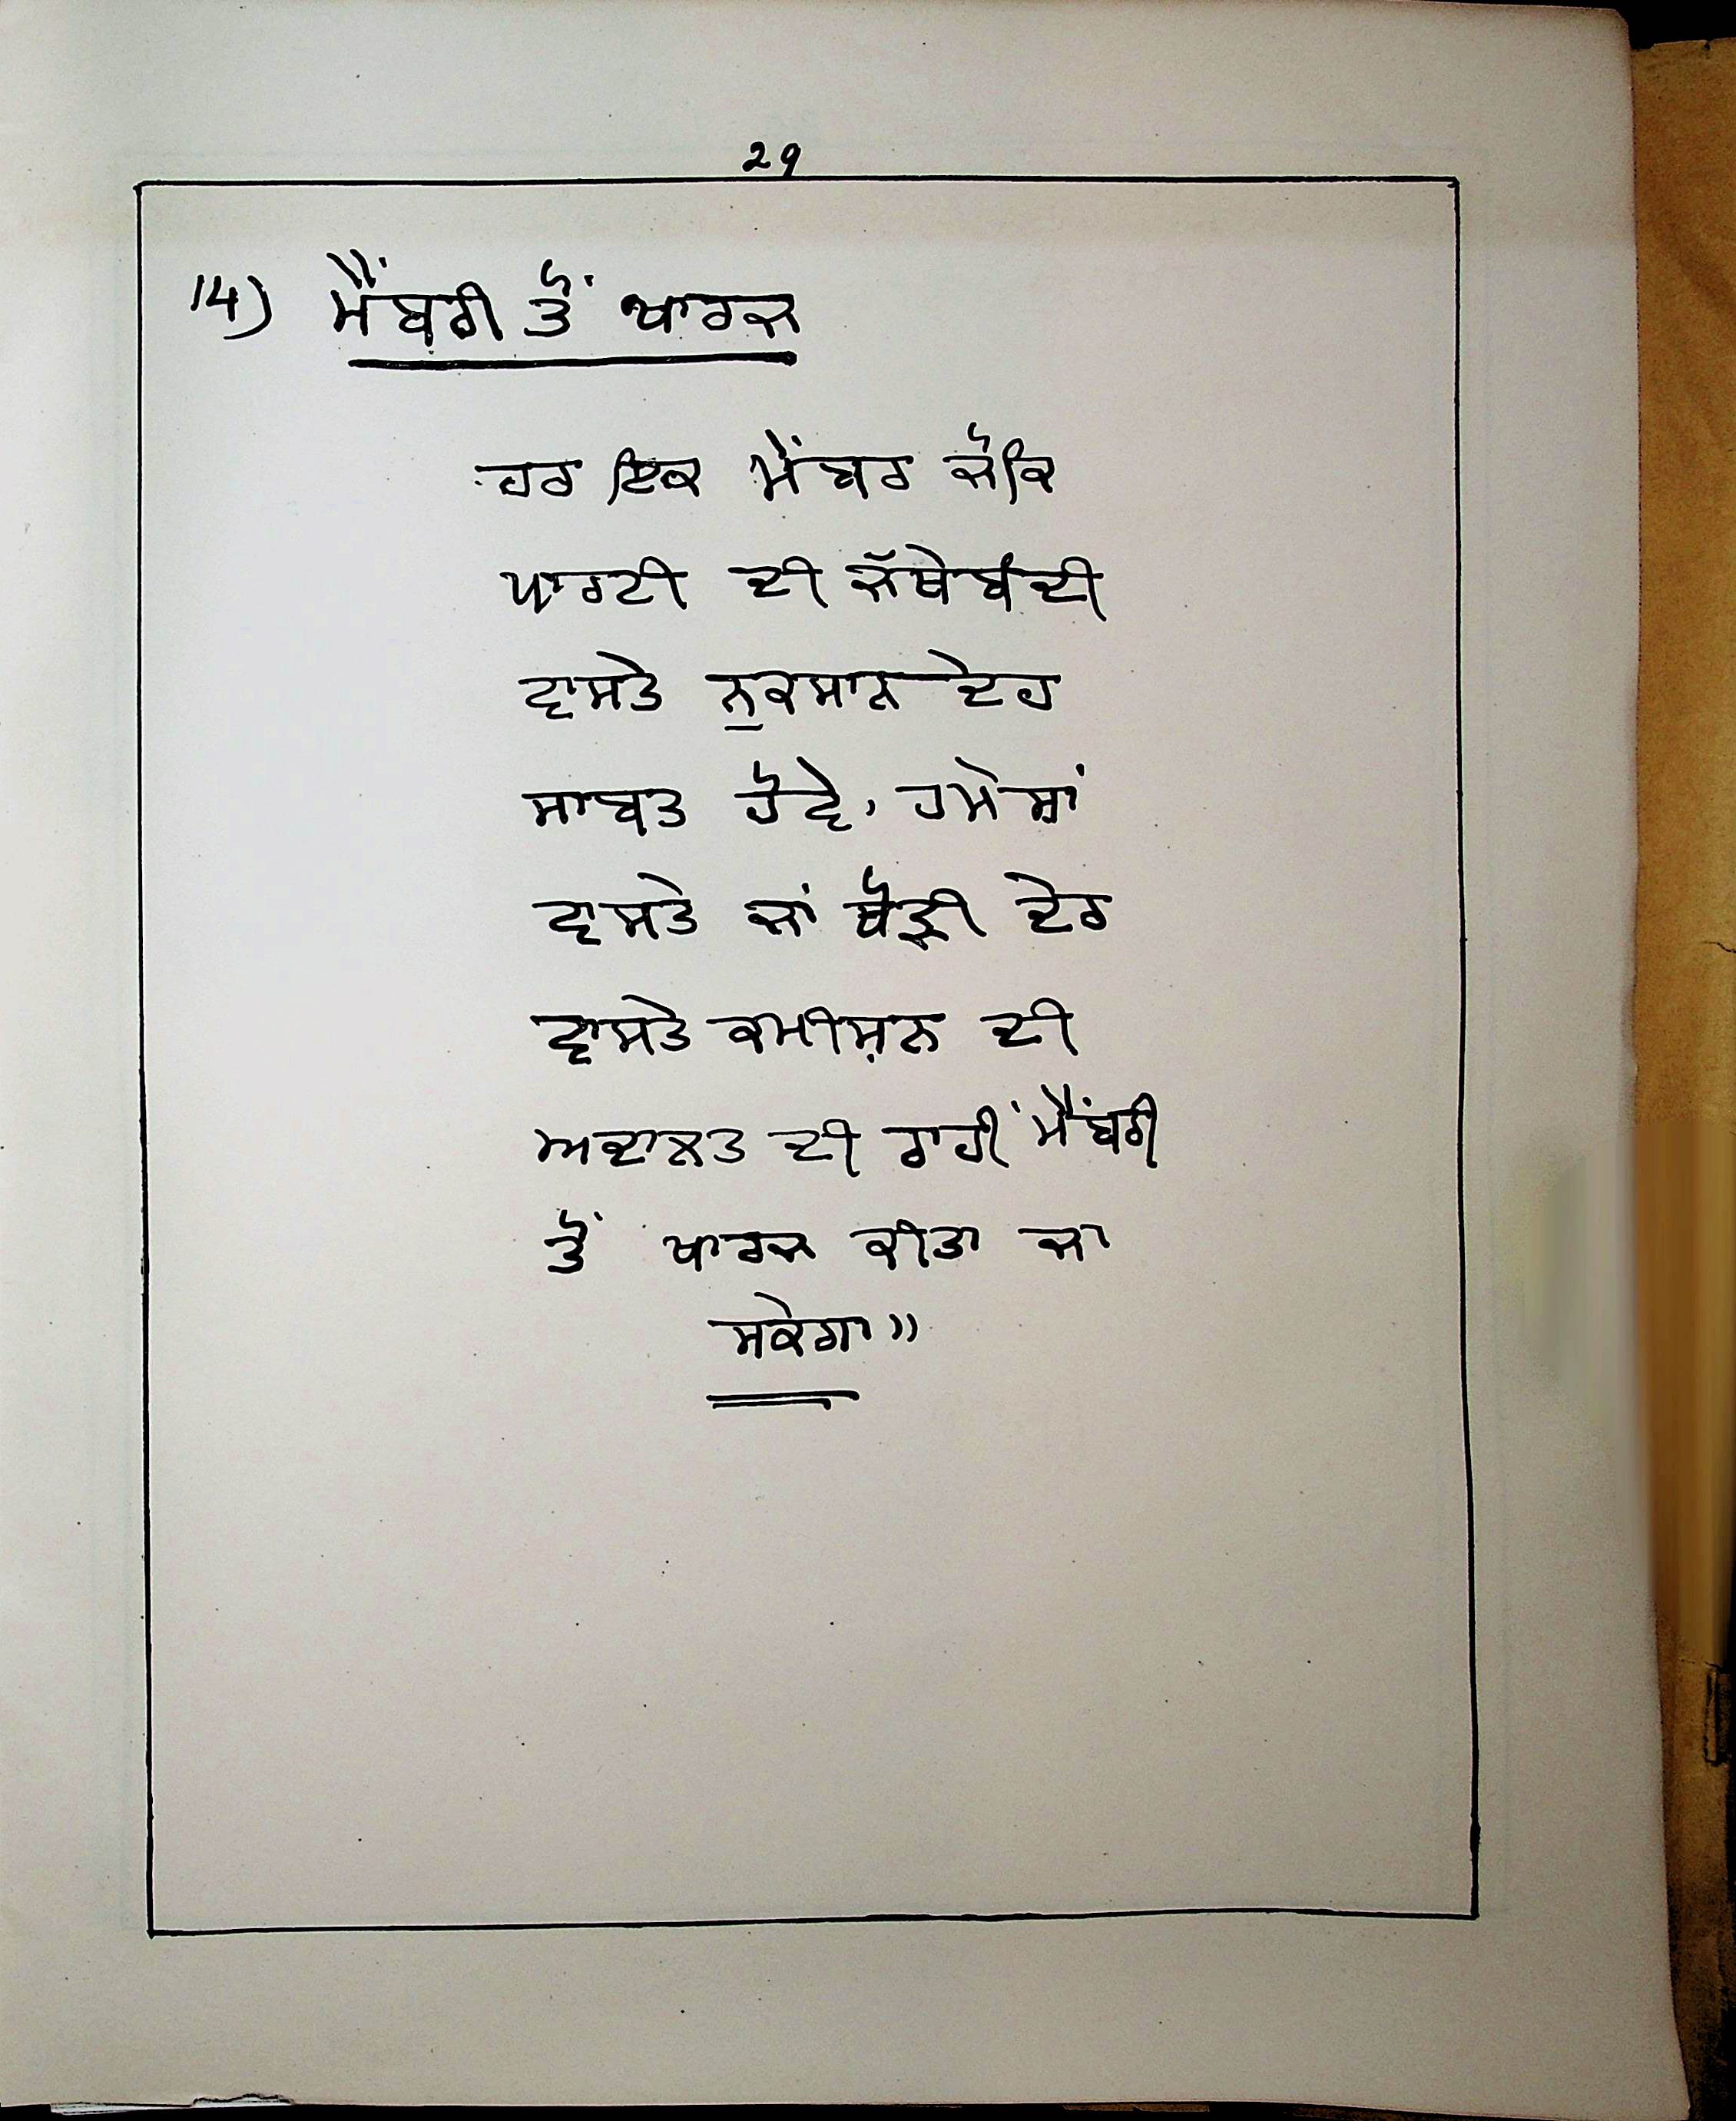 29
14) ਮੈਂਬਰੀ ਤੋਂ ਖਾਰਜ
ਹਰ ਇਕ ਮੈਂਬਰ ਜੋਕਿ
ਪਾਰਟੀ ਦੀ ਜੱਥੇਬੰਦੀ
ਵਾਸਤੇ ਨੁਕਸਾਨ ਦੇਹ
ਸਾਬਤ ਹੋਵੇ, ਹਮੇਸ਼ਾਂ
ਵਾਸਤੇ ਜਾਂ ਥੋੜੀ ਦੇਰ
ਵਾਸਤੇ ਕਮੀਸ਼ਨ ਦੀ
ਅਦਾਲਤ ਦੀ ਰਾਹੀਂ ਮੈਂਬਰੀ
ਤੋਂ ਖਾਰਜ ਕੀਤਾ ਜਾ
ਸਕੇਗਾ"